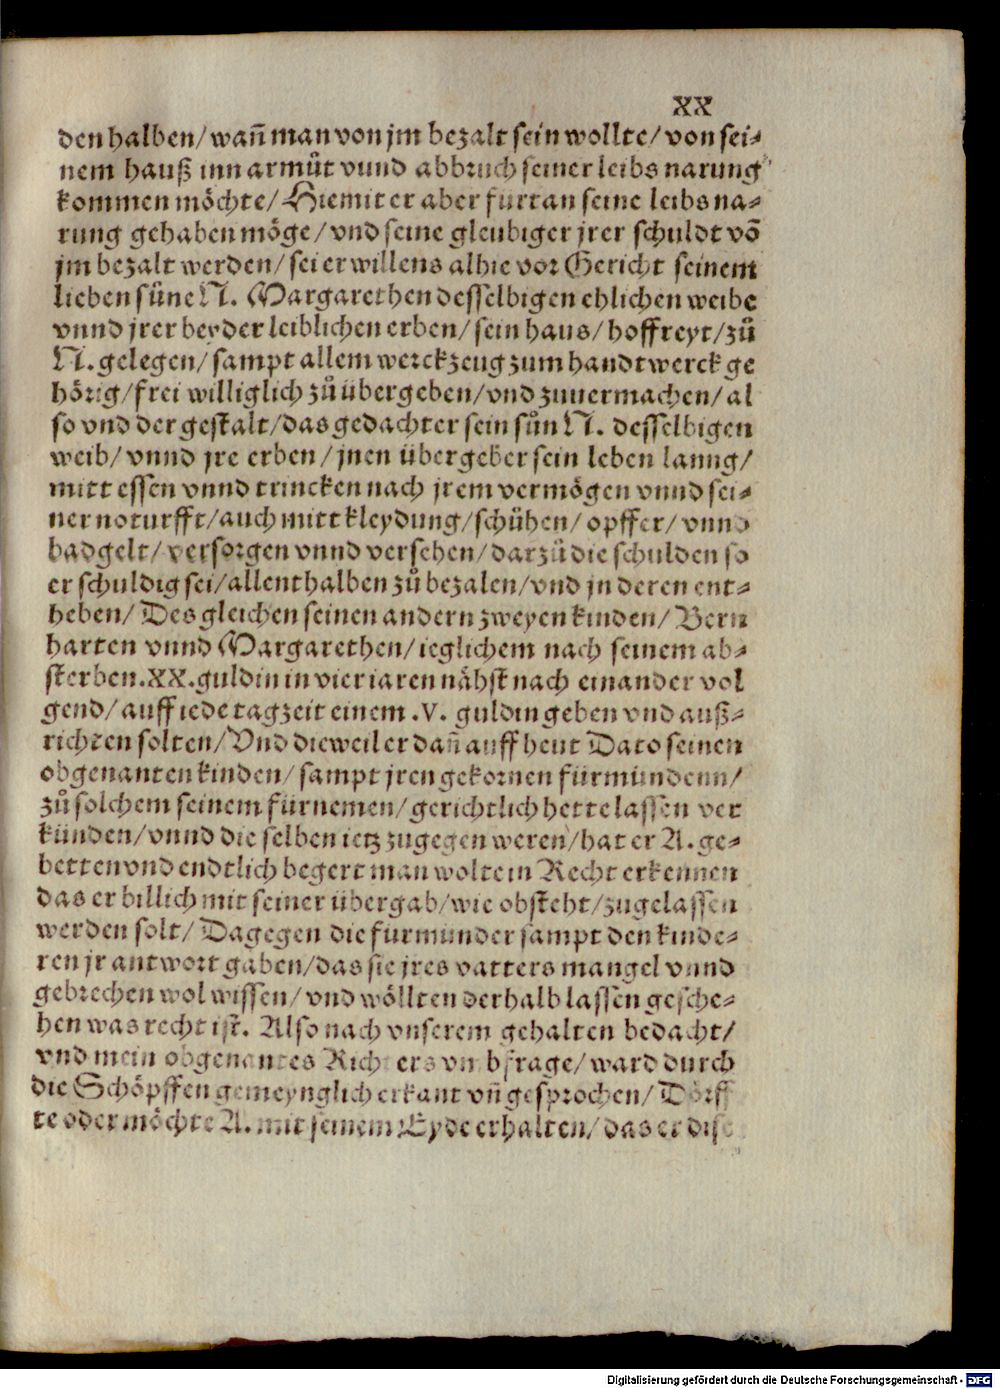 XX
den halben/ wañ man von jm bezalt sein wollte/ von sei⸗
nem hauß inn armůt vund abbruch seiner leibs narung
kommen möchte/ Hiemit er aber furtan seine leibs na⸗
rung gehaben möge/ vnd seine gleubiger jrer schuldt võ
jm bezalt werden/ sei er willens alhie vor Gericht seinem
lieben sůne N. Margarethen desselbigen ehlichen weibe
vnnd jrer beyder leiblichen erben/ sein haus/ hoffreyt/ zů
N. gelegen/ sampt allem werckzeug zum handtwerck ge
hörig/ frei williglich zů übergeben/ vnd zuuermachen/ al
so vnd der gestalt/ das gedachter sein sůn N. desselbigen
weib/ vnnd jre erben/ jnen übergeber sein leben lanng/
mitt essen vnnd trincken nach jrem vermögen vnnd sei⸗
ner noturfft/ auch mitt kleydung/ schůhen/ opffer/ vnnd
badgelt/ versorgen vnnd versehen/ darzů die schulden so
er schuldig sei/ allenthalben zů bezalen/ vnd jn deren ent⸗
heben/ Des gleichen seinen andern zweyen kinden/ Bern
harten vnnd Margarethen/ ieglichem nach seinem ab⸗
sterben .XX. guldin in vier iaren nähst nach einander vol
gend/ auff iede tagzeit einem .V. guldin geben vnd auß⸗
richten solten/ Vnd dieweil er dañ auff heut Dato seinen
obgenanten kinden/ sampt jren gekornen fürmündenn/
zů solchem seinem fürnemen/ gerichtlich hette lassen ver
künden/ vnnd die selben ietz zugegen weren/ hat er A. ge⸗
betten vnd endtlich begert man wolte in Recht erkennen
das er billich mit seiner übergab/ wie obsteht/ zugelassen
werden solt/ Dagegen die fürmünder sampt den kinde⸗
ren jr antwort gaben/ das sie jres vatters mangel vnnd
gebrechen wol wissen/ vnd wöllten derhalb lassen gesche⸗
hen was recht ist. Also nach vnserem gehalten bedacht/
vnd mein obgenantes Richters vmbfrage/ ward durch
die Schöpffen gemeynglich erkant vñ gesprochen/ Dörff
te oder möchte A. mit seinem Eyde erhalten/ das er dise
Digitalisierung gefördert durch die Deutsche Forschungsgemeinschaft - DFG